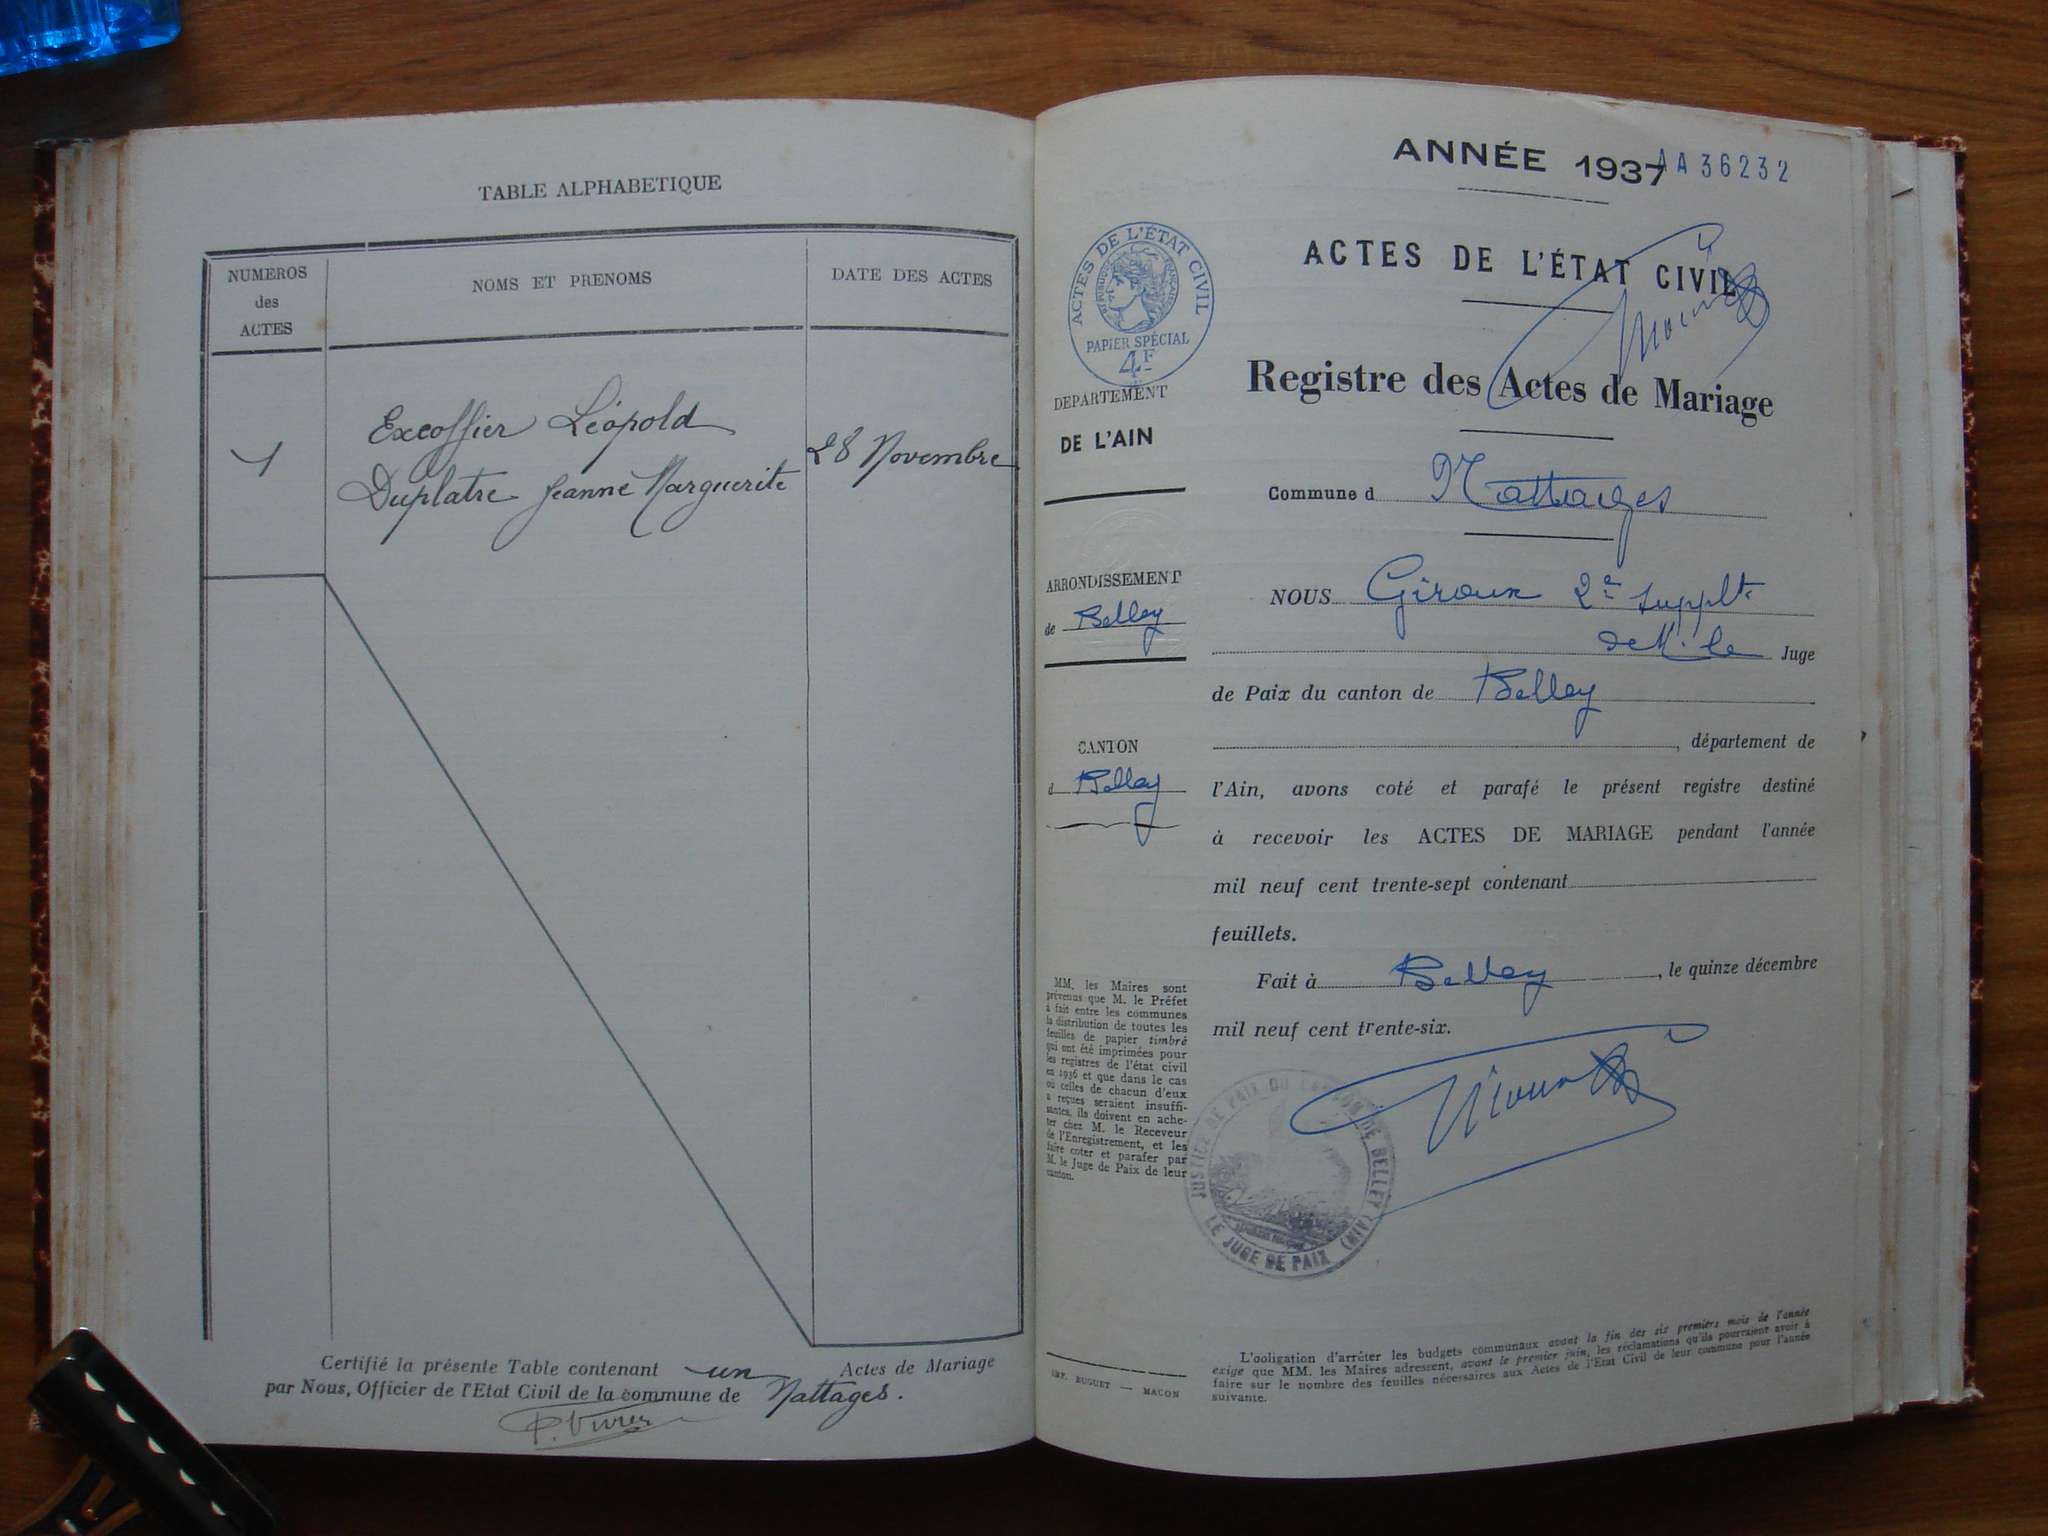 TABLE ALPHABETIQUE
NUMEROS
des
ACTES
NOMS ET PRENOMS
DATE DES ACTES
1
Excoffier Léopold
Duplatre Jeanne Marguerite
28 Novembre
Certifié la présente Table contenant un Actes de Mariage
par Nous, Officier de l'Etat Civil de la commune de Nattages.
ANNÉE 1937
AA36232
ACTES DE L'ÉTAT CIVIL
ACTES DE L'ÉTAT CIVIL
RÉPUBLIQUE FRANÇAISE
PAPIER SPÉCIAL
4F
Registre des Actes de Mariage
DEPARTEMENT
DE L'AIN
Commune d Nattages
ARRONDISSEMENT
de Belley
NOUS Giroux 2e supplt
de M. le Juge
de Paix du canton de Belley
, département de
CANTON
d Belley
l'Ain, avons coté et parafé le présent registre destiné
à recevoir les ACTES DE MARIAGE pendant l'année
mil neuf cent trente-sept contenant
feuillets.
Fait à Belley, le quinze décembre
mil neuf cent trente-six.
MM. les Maires sont
prévenus que M. le Préfet
a fait entre les communes
la distribution de toutes les
feuilles de papier timbré
qui ont été imprimées pour
les registres de l'état civil
en 1936 et que dans le cas
où celles de chacun d'eux
a reçues seraient insuffi-
santes, ils doivent en ache-
ter chez M. le Receveur
de l'Enregistrement, et les
faire coter et parafer par
M. le Juge de Paix de leur
canton.
JUSTICE DE PAIX DU CANTON DE BELLEY (AIN)
LE JUGE DE PAIX
IMP. BUGUET — MACON
L'obligation d'arrêter les budgets communaux avant la fin des six premiers mois de l'année
exige que MM. les Maires adressent, avant le premier juin, les réclamations qu'ils pourraient avoir à
faire sur le nombre des feuilles nécessaires aux Actes de l'Etat Civil de leur commune pour l'année
suivante.